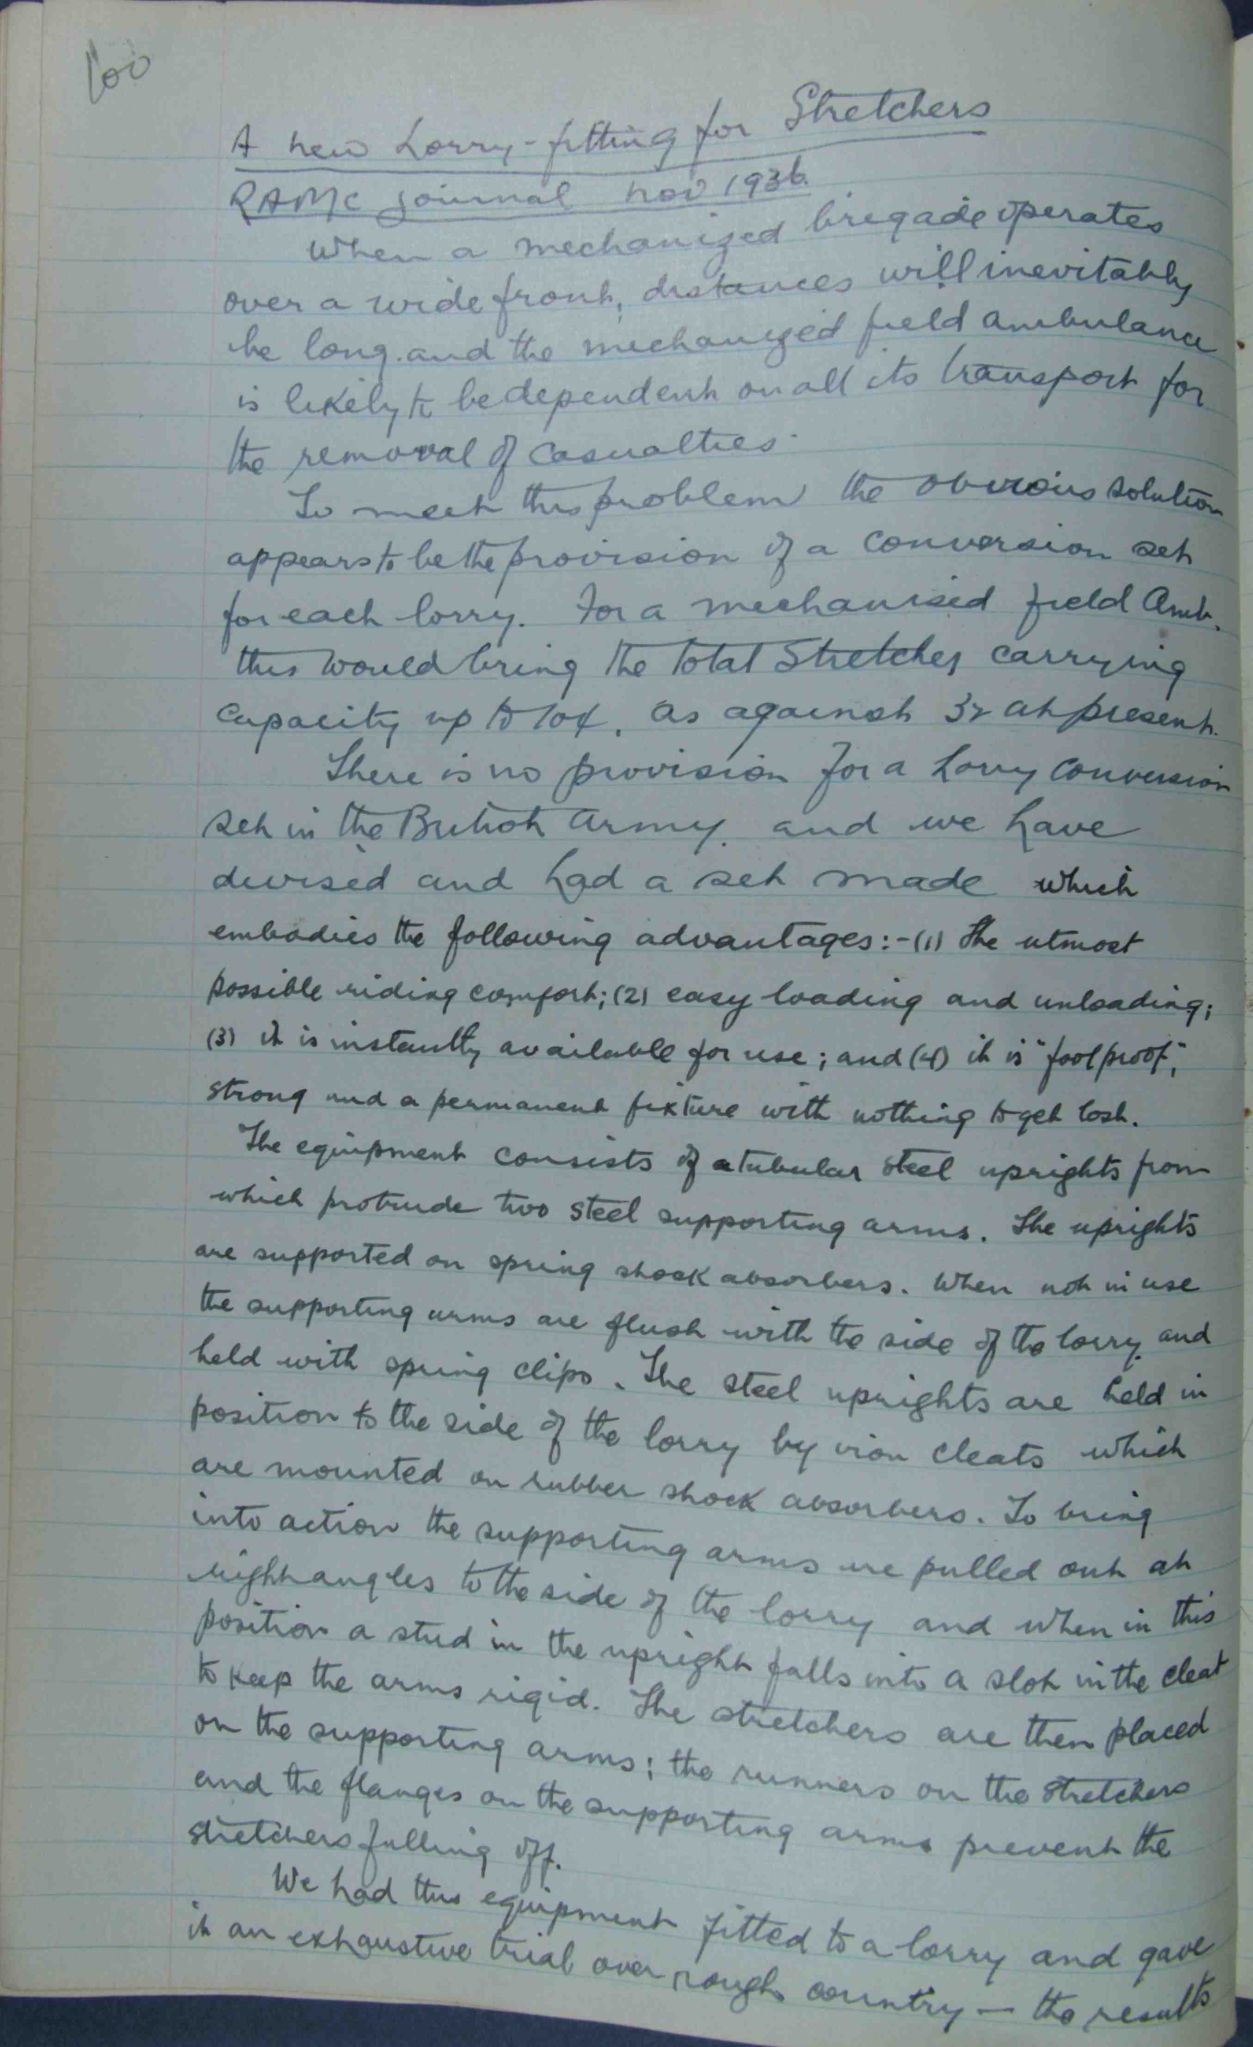 100
A new Lorry-fitting for Stretchers
RAMC Journal Nov 1936.
When a mechanized brigade operates
over a wide front, distances will inevitably
be long and the mechanized field ambulance
is likely to be dependent on all its transport for
the removal of casualties.
To meet this problem the obvious solution
appears to be the provision of a conversion set
for each lorry. For a mechanised field Amb.
this would bring the total Stretcher carrying
capacity up to 104, as against 32 at present.
There is no provision for a Lorry conversion
set in the British Army, and we have
devised and had a set made which
embodies the following advantages:-(1) The utmost
possible riding comfort; (2) easy loading and unloading;
(3) it is instantly available for use; and (4) it is "foolproof",
strong and a permanent fixture with nothing to get lost.
The equipment consists of a tubular steel uprights from
which protrude two steel supporting arms. The uprights
are supported on spring shock absorbers. When not in use
the supporting arms are flush with the side of the lorry and
held with spring clips. The steel uprights are held in
position to the side of the lorry by iron cleats which
are mounted on rubber shock absorbers. To bring
into action the supporting arms are pulled out at
right angles to the side of the lorry and when in this
position a stud in the upright falls into a slot in the cleat
to keep the arms rigid. The stretchers are then placed
on the supporting arms; the runners on the stretchers
and the flanges on the supporting arms prevent the
stretchers falling off.
We had this equipment fitted to a lorry and gave
it an exhaustive trial over rough country — the results